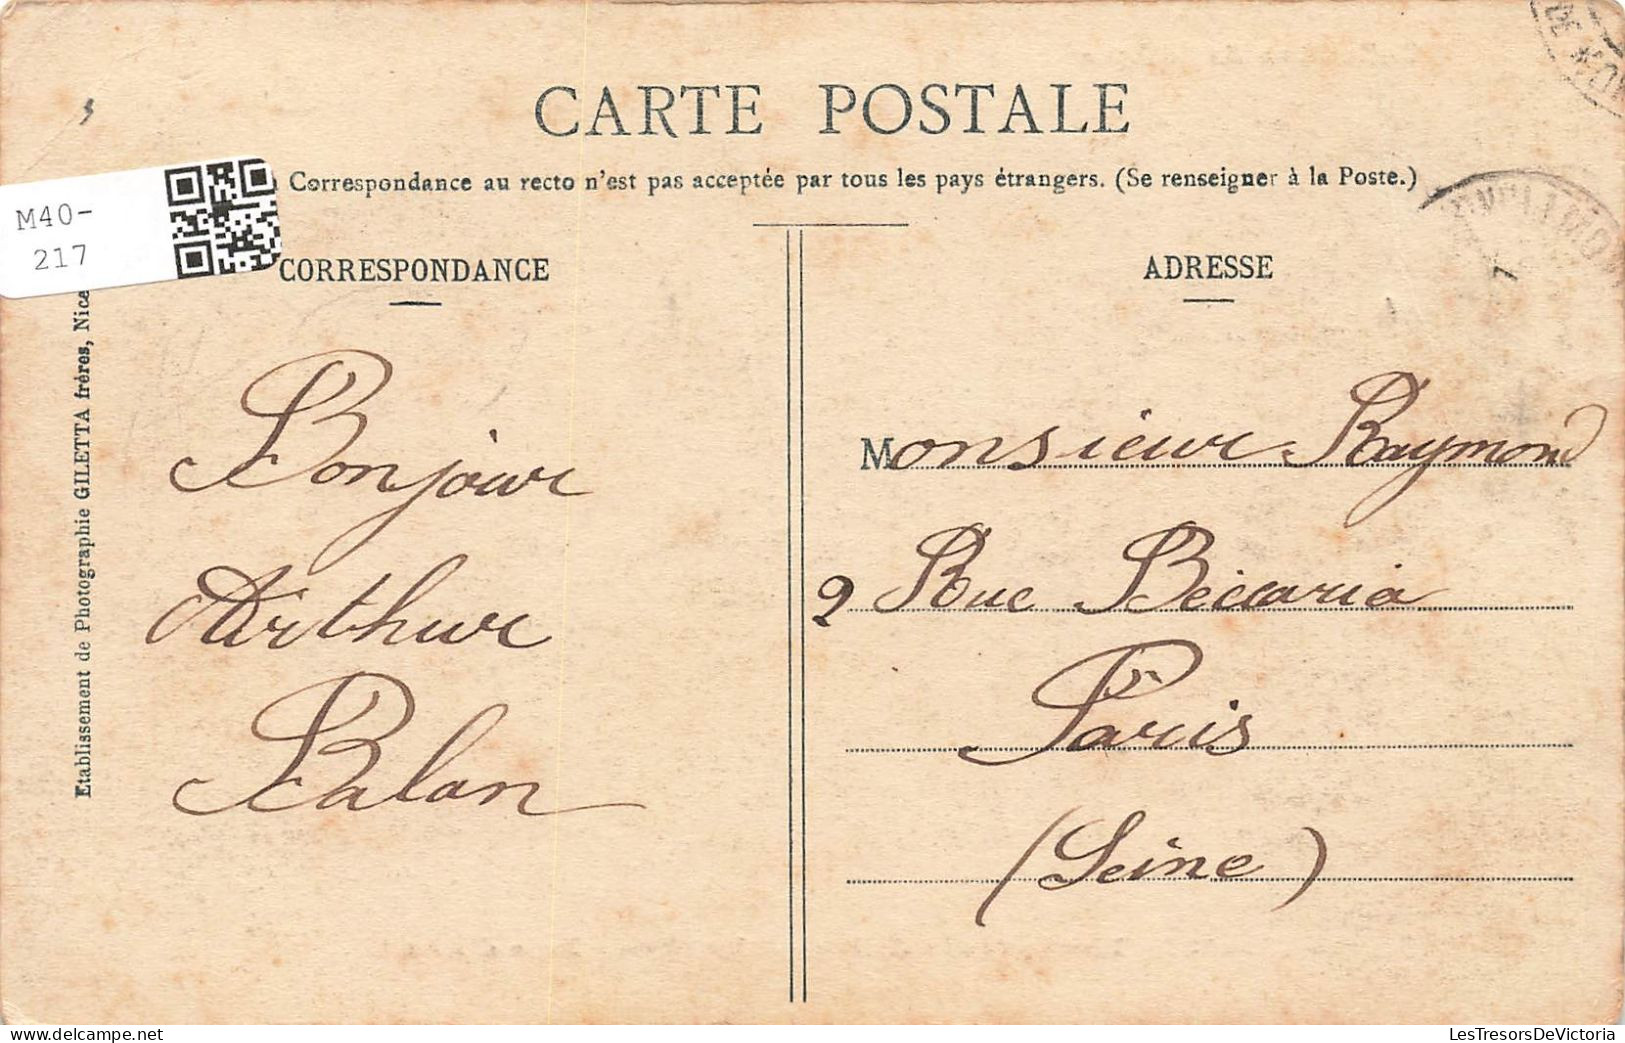 CARTE POSTALE
Correspondance au recto n'est pas acceptée par tous les pays étrangers. (Se renseigner à la Poste.)
M40-
217
CORRESPONDANCE
Bonjour
Arthur
Balan
Etablissement de Photographie GILETTA frères, Nice
ADRESSE
Monsieur Raymond
2 Rue Béccaria
Paris
(Seine)
delcampe.net
LesTresorsDeVictoria